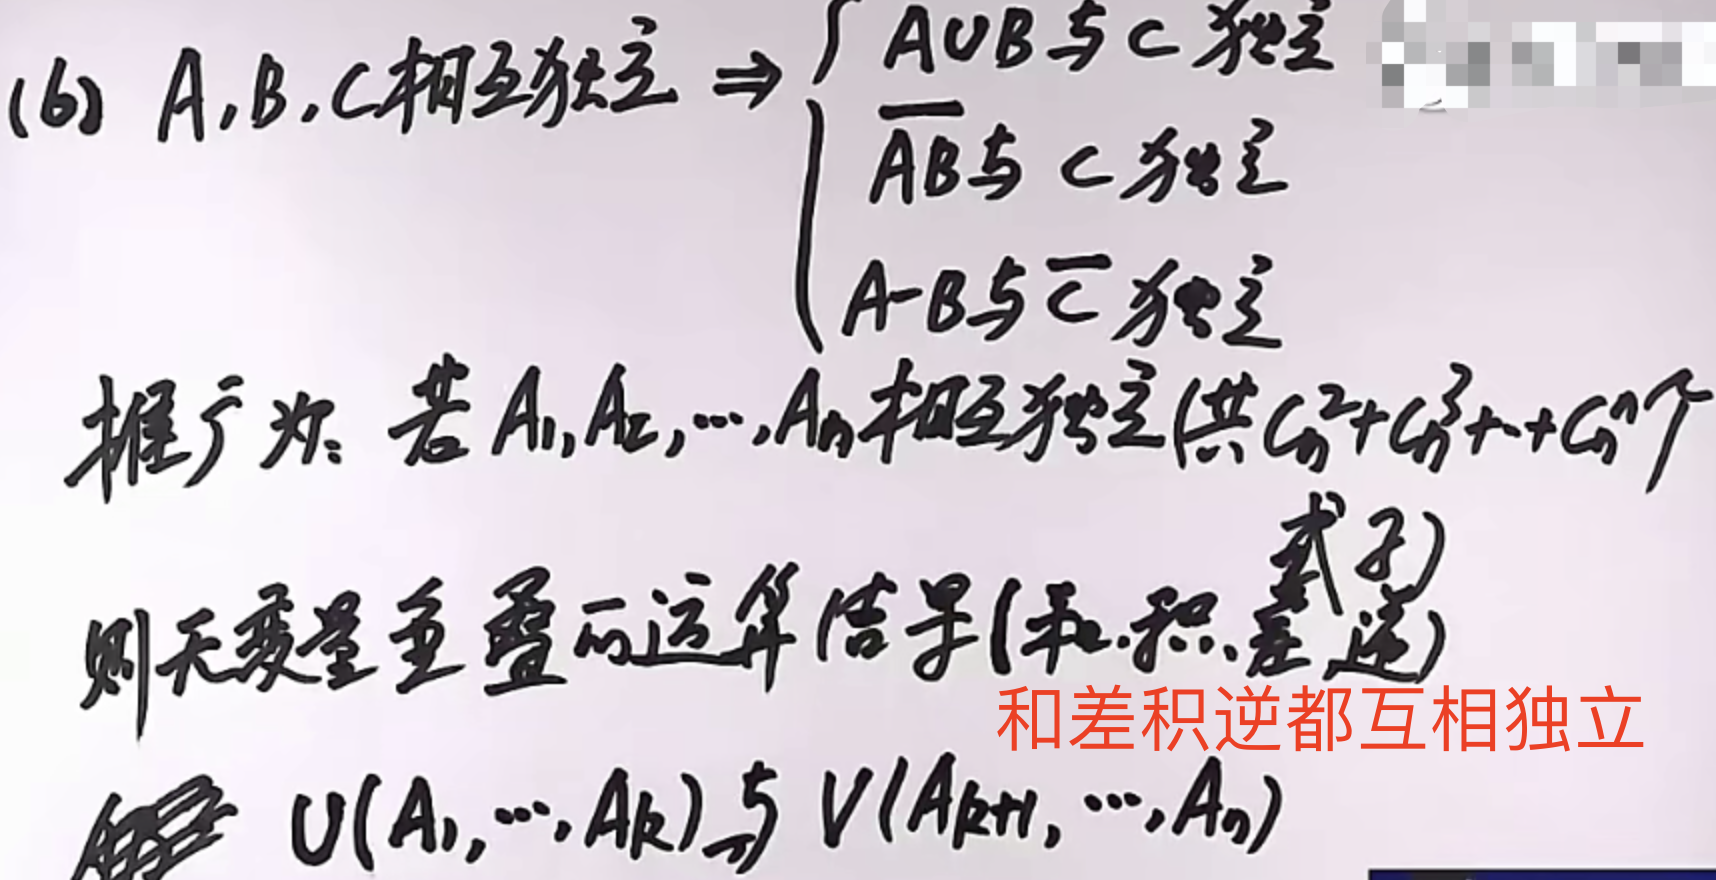 (6) A,B,C相互独立 ⇒ { A∪B与C独立
\overline{AB}与C独立
A-B与\overline{C}独立
推广为: 若A₁,A₂,…,Aₙ相互独立(共Cₙ²+Cₙ³+…+Cₙⁿ个
式子)
则无变量重叠的运算结果(和.积.差.逆)
和差积逆都互相独立
U(A₁,…,Aₖ)与V(Aₖ₊₁,…,Aₙ)